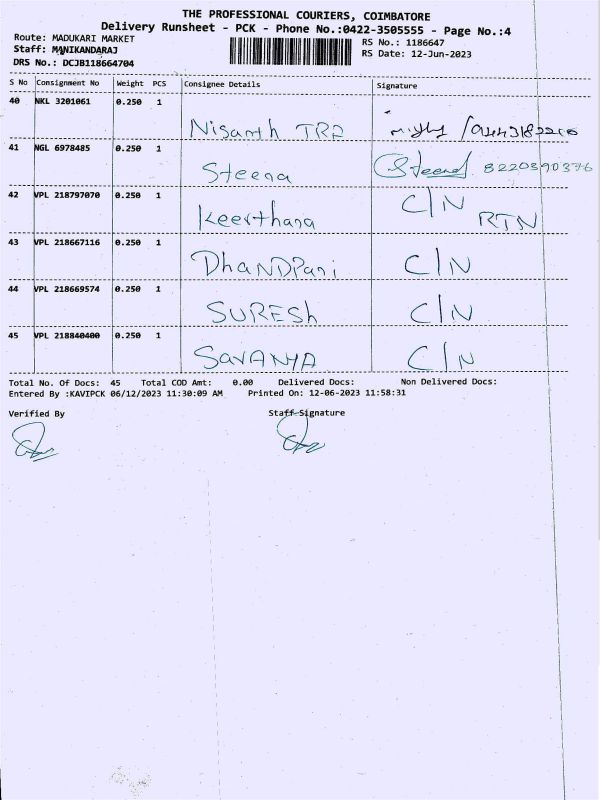 THE PROFESSIONAL COURIERS, COIMBATORE
Delivery Runsheet - PCK - Phone No.:0422-3505555 - Page No.:4
Route: MADUKARI MARKET
RS No.: 1186647
Staff: MANIKANDARAJ
RS Date: 12-Jun-2023
DRS No.: DCJB118664704
S No Consignment No Weight PCS Consignee Details Signature
40 NKL 3201061 0.250 1
Nisanth
41 NGL 6978485 0.250 1
Steena Steena 8220390376
42 VPL 218797070 0.250 1
Keerthana C/N RTN
43 VPL 218667116 0.250 1
DhaNDPani C/N
44 VPL 218669574 0.250 1
SURESh C/N
45 VPL 218840400 0.250 1
SaraNYA C/N
Total No. Of Docs: 45 Total COD Amt: 0.00 Delivered Docs: Non Delivered Docs:
Entered By :KAVIPCK 06/12/2023 11:30:09 AM Printed On: 12-06-2023 11:58:31
Verified By Staff Signature